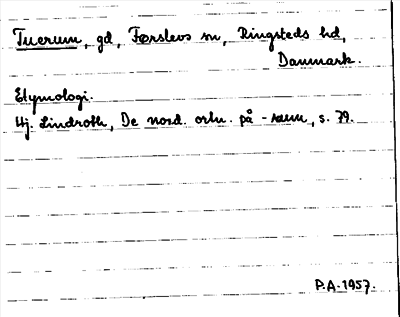 Tuerum, gd, Førslevs sn, Ringsteds hd,
Danmark.
Etymologi.
Hj. Lindroth, De nord. ortn. på -rum, s. 79.
P.A. 1957.